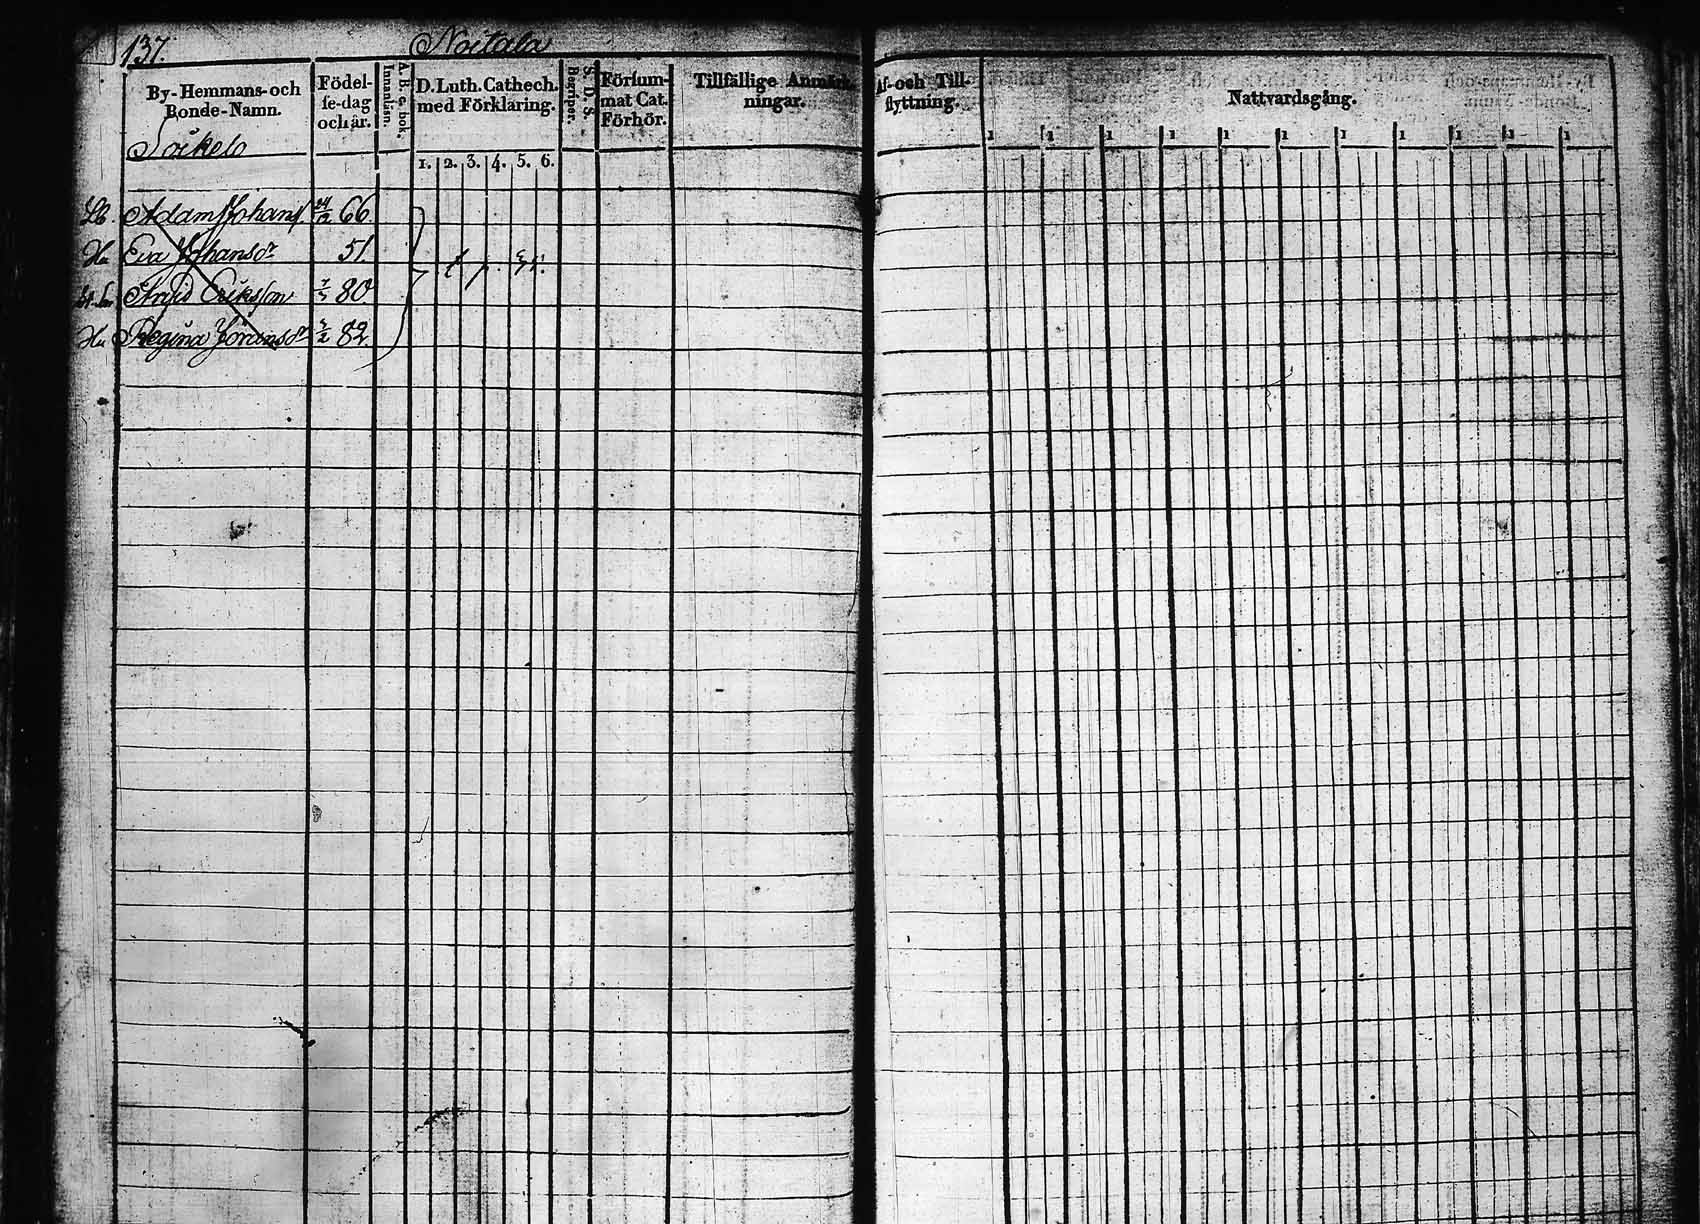 137. Noitala
By-Hemmans-och Bonde-Namn.
Födelse-dag och år.
A. B. c. bok. Innanläsn.
D. Luth. Cathech. med Förklaring.
S. D. S. Begriper.
Försummat Cat. Förhör.
Tillfällige Anmärkningar.
Af- och Tillflyttning.
Nattvardsgång.
1. 2. 3. 4. 5. 6.
1 1 1 1 1 1 1 1 1 1 1
Adam Johans 24/12 66
Hu Eva Johansdr 51.
Eriksson 80
Hu Regina Jöransdr 3/2 82.